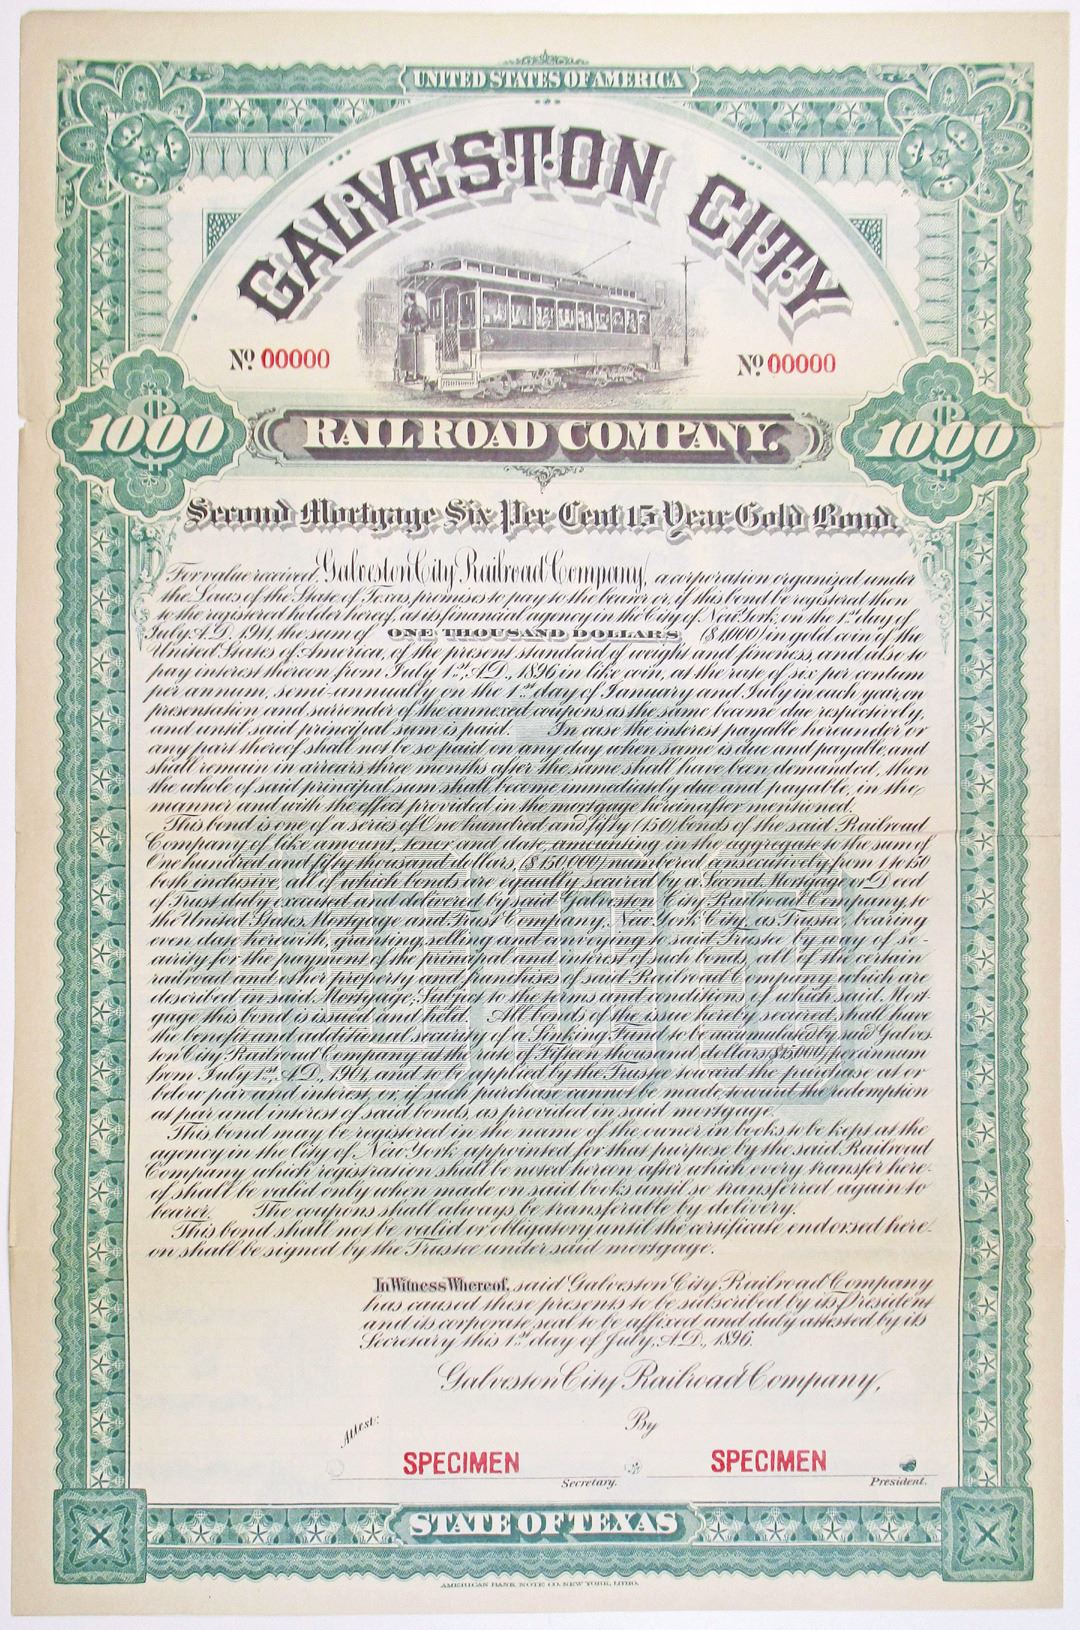 UNITED STATES OF AMERICA
GALVESTON CITY
No. 00000
No. 00000
$1000
RAILROAD COMPANY.
$1000
Second Mortgage Six Per Cent 15 Year Gold Bond.
For value received, Galveston City Railroad Company, a corporation organized under
the Laws of the State of Texas, promises to pay to the bearer or, if this bond be registered then
to the registered holder hereof, at its financial agency in the City of New York, on the 1st day of
July A.D. 1911, the sum of ONE THOUSAND DOLLARS ($1,000) in gold coin of the
United States of America, of the present standard of weight and fineness, and also to
pay interest thereon from July 1st, A.D., 1896 in like coin, at the rate of six per centum
per annum, semi-annually on the 1st day of January and July in each year, on
presentation and surrender of the annexed coupons as the same become due respectively,
and until said principal sum is paid. In case the interest payable hereunder or
any part thereof shall not be so paid on any day when same is due and payable, and
shall remain in arrears three months after the same shall have been demanded, then
the whole of said principal sum shall become immediately due and payable, in the
manner and with the effect provided in the mortgage hereinafter mentioned.
This bond is one of a series of One hundred and fifty (150) bonds of the said Railroad
Company of like amount, tenor and date, amounting in the aggregate to the sum of
One hundred and fifty thousand dollars, ($150,000) numbered consecutively from 1 to 150
both inclusive, all of which bonds are equally secured by a Second Mortgage or Deed
of Trust duly executed and delivered by said Galveston City Railroad Company, to
the United States Mortgage and Trust Company, New York City, as Trustee, bearing
even date herewith, granting, selling and conveying to said Trustee by way of se-
curity for the payment of the principal and interest of such bonds, all of the certain
railroad and other property and franchises of said Railroad Company which are
described in said Mortgage; Subject to the terms and conditions of which said Mort-
gage this bond is issued and held. All bonds of the issue hereby secured shall have
the benefit and additional security of a Sinking Fund to be accumulated by said Galves-
ton City Railroad Company at the rate of Fifteen thousand dollars ($15,000) per annum
from July 1st, A.D., 1904, and to be applied by the Trustee toward the purchase at or
below par and interest, or, if such purchase cannot be made, toward the redemption
at par and interest of said bonds, as provided in said mortgage.
This bond may be registered in the name of the owner in books to be kept at the
agency in the City of New York appointed for that purpose by the said Railroad
Company which registration shall be noted hereon after which every transfer here-
of shall be valid only when made on said books until so transferred again to
bearer. The coupons shall always be transferable by delivery.
This bond shall not be valid or obligatory until the certificate endorsed here-
on shall be signed by the Trustee under said mortgage.
In Witness Whereof, said Galveston City Railroad Company
has caused these presents to be subscribed by its President
and its corporate seal to be affixed and duly attested by its
Secretary this 1st day of July, A.D., 1896.
Galveston City Railroad Company,
Attest:
By
SPECIMEN
SPECIMEN
Secretary.
President.
STATE OF TEXAS
AMERICAN BANK NOTE CO. NEW YORK, LITHO.